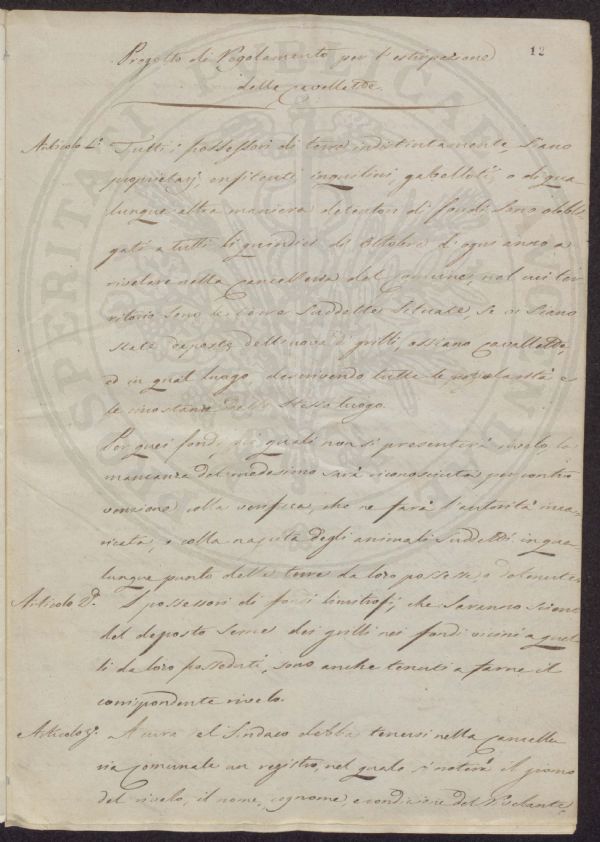 12
Progetto di Regolamento per l'estirpazione
delle cavallette.
Articolo 1.° Tutti i possessori di terre indistintamente, siano
proprietarj, enfiteuti, inquilini, gabelloti, o di qua-
lunque altra maniera detentori di fondi sono obbli
gati a tutti li quindici di Ottobre d'ogni anno a
rivelare nella Cancelleria del Comune, nel cui ter
ritorio sono le terre suddette situate, se vi siano
state deposte dell'uova di grilli, ossiano cavallette,
ed in qual luogo, descrivendo tutte le qualità e
le circostanze dello stesso luogo.
Per quei fondi, pei quali non si presenterà rivelo, la
mancanza del medesimo sarà riconosciuta per contro
venzione colla verifica, che ne farà l'autorità inca-
ricata, e colla nascita degli animali suddetti in qua-
lunque punto delle terre da loro possesse o detenute.
Articolo 2.° I possessori di fondi limitrofi, che saranno scienti
del deposto seme dei grilli nei fondi vicini a quel-
li da loro posseduti, sono anche tenuti a farne il
corrispondente rivelo.
Articolo 3.° A cura del Sindaco debba tenersi nella Cancelle
ria Comunale un registro, nel quale si noterà il giorno
del rivelo, il nome, cognome, e condizione del Rivelante,
PROSPERITATI PUBLICAE